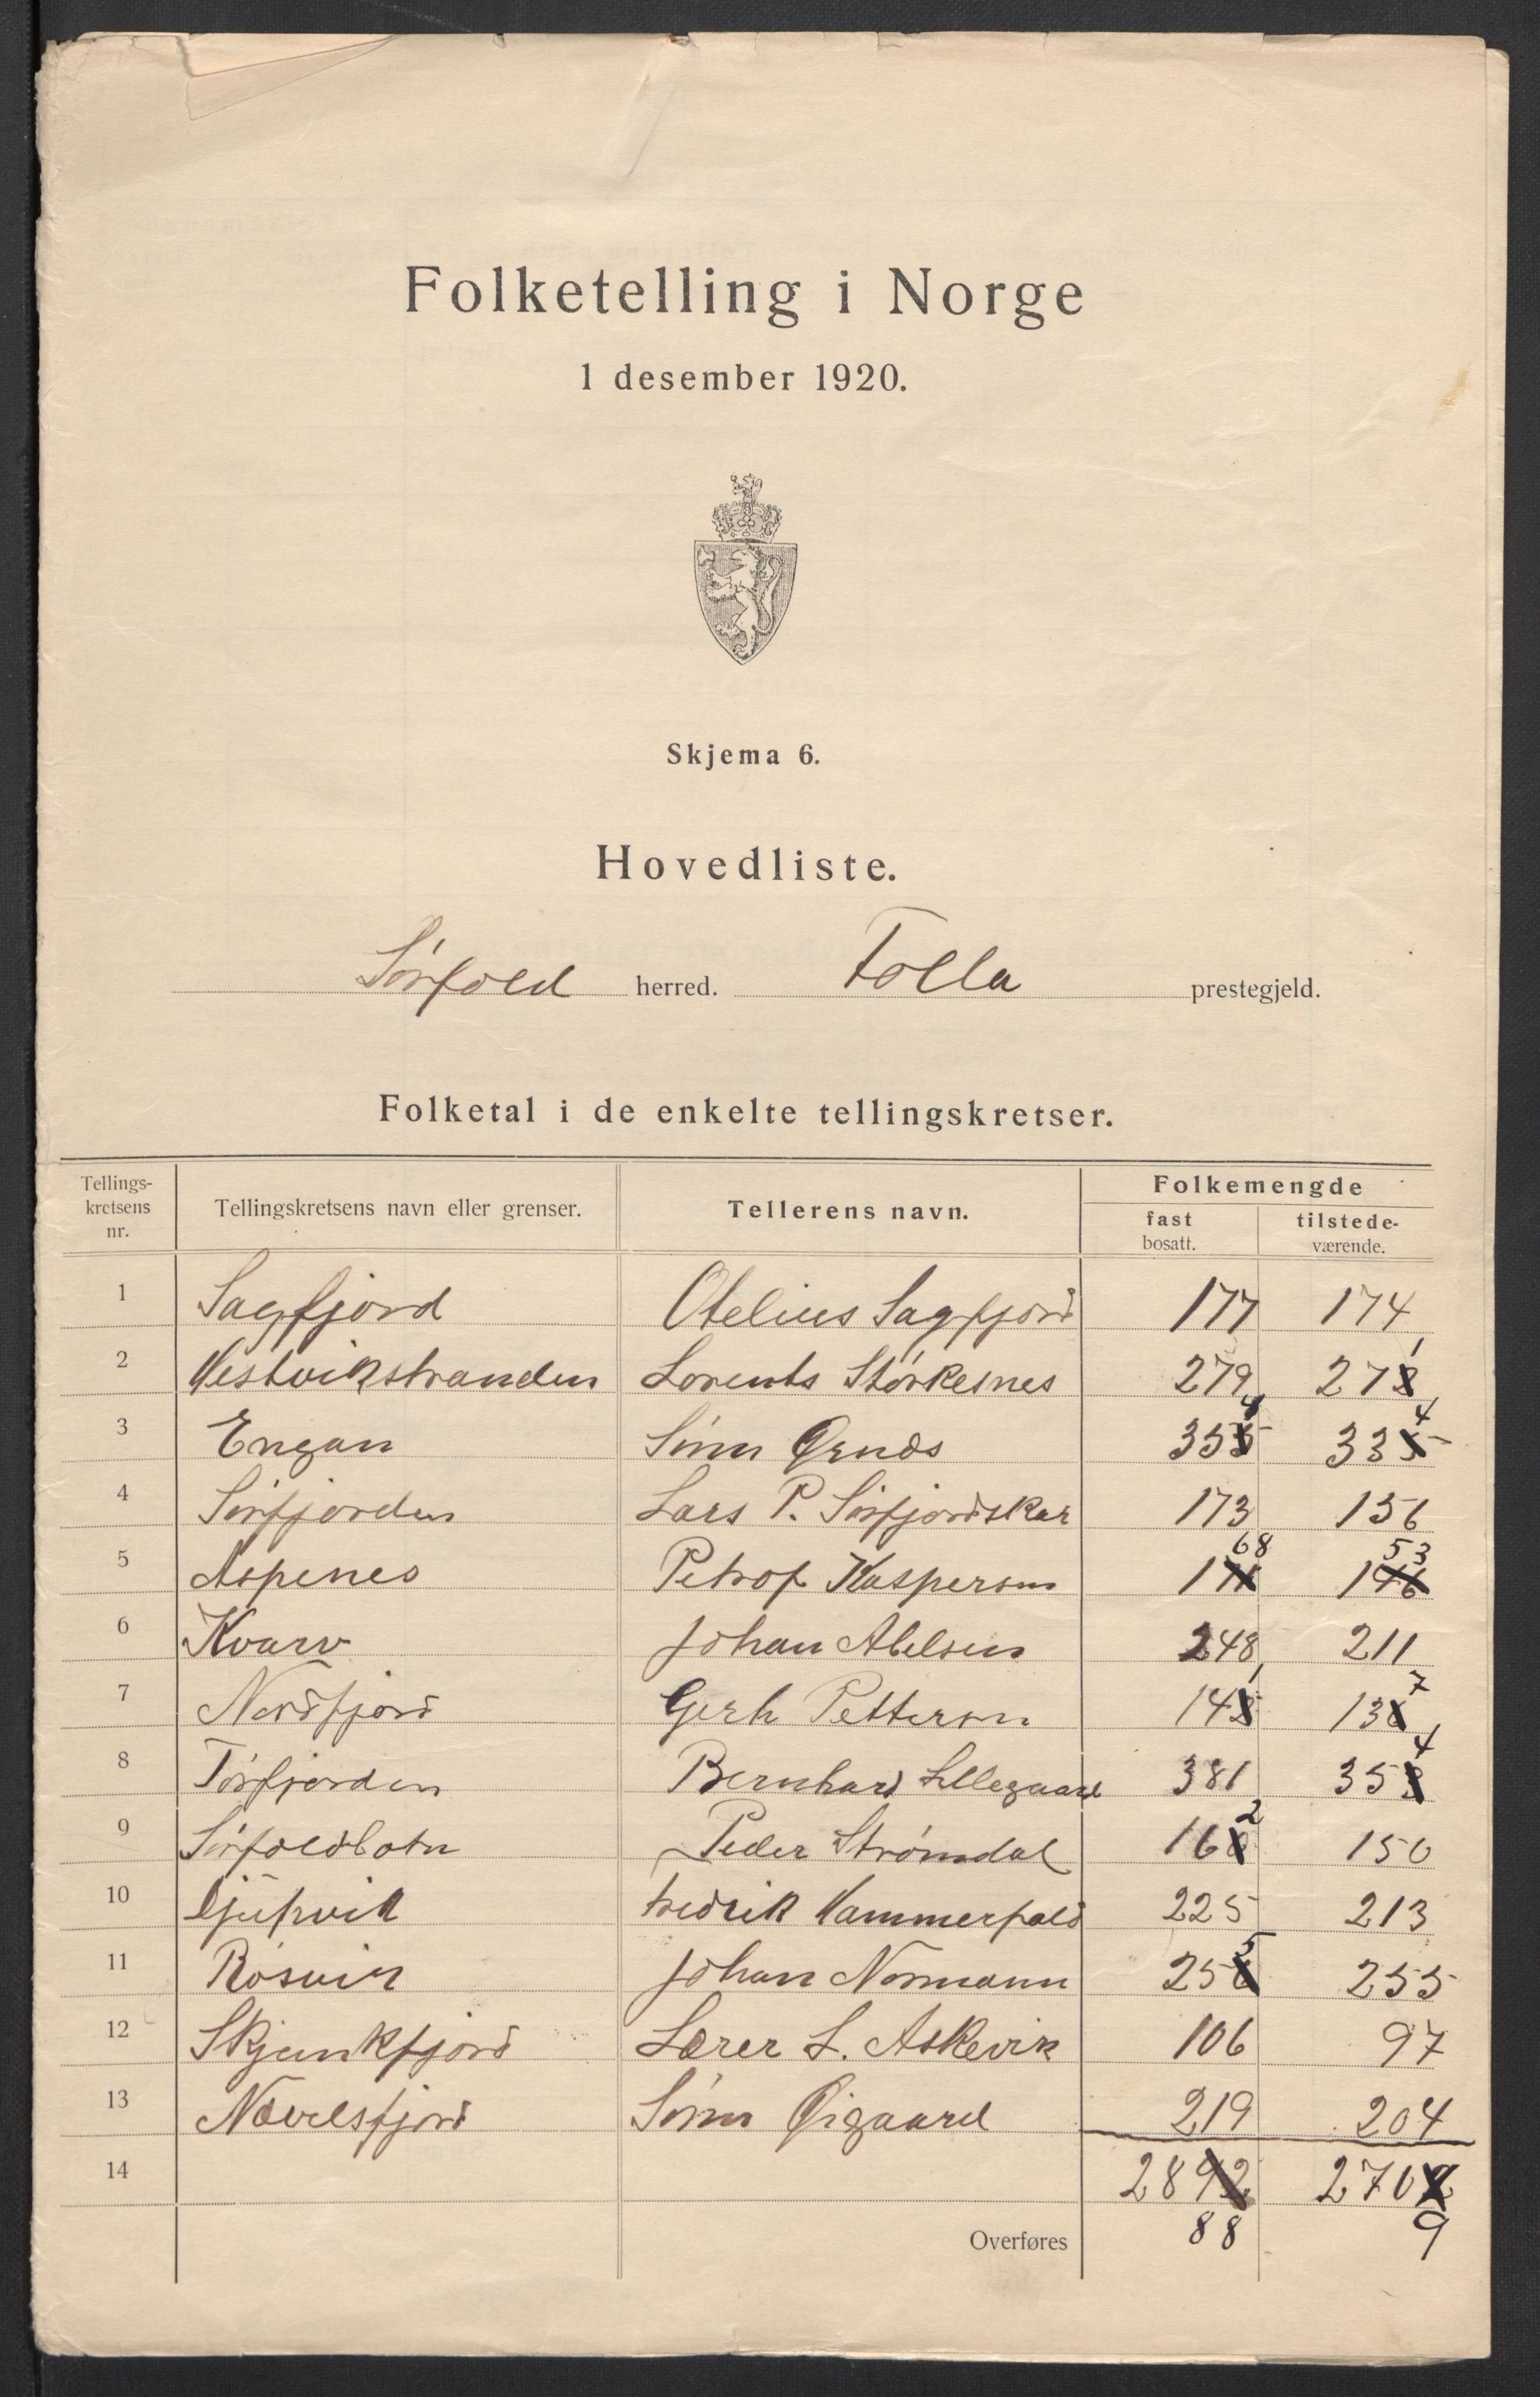 Folketelling i Norge
1 desember 1920.
Skjema 6.
Hovedliste.
Sørfold herred. Folla prestegjeld.
Folketal i de enkelte tellingskretser.
Tellings-kretsens nr. Tellingskretsens navn eller grenser. Tellerens navn. Folkemengde
fast bosatt. tilstede-værende.
1 Sagfjord Otelius Sagfjord 177 174
2 Vestvikstranden Lorents Størkesnes 279 271
3 Engan Sørnes 354 334
4 Sørfjorden Lars P. Sørfjordskar 173 156
5 Aspenes Petrof Kaspersen 168 153
6 Kvarv Johan Abelsen 248 211
7 Nordfjord Gerh Pettersen 141 137
8 Tørfjorden Bernhard Lillegaard 381 354
9 Sørfoldbotn Peder Strømdal 162 150
10 Djupvik Fredrik Hammerfald 225 213
11 Røsvik Johan Normann 255 255
12 Skjunkfjord Lærer L. Askevik 106 97
13 Nævelsfjord Søren Øigaard 219 204
14 2892 270
Overføres 88 9